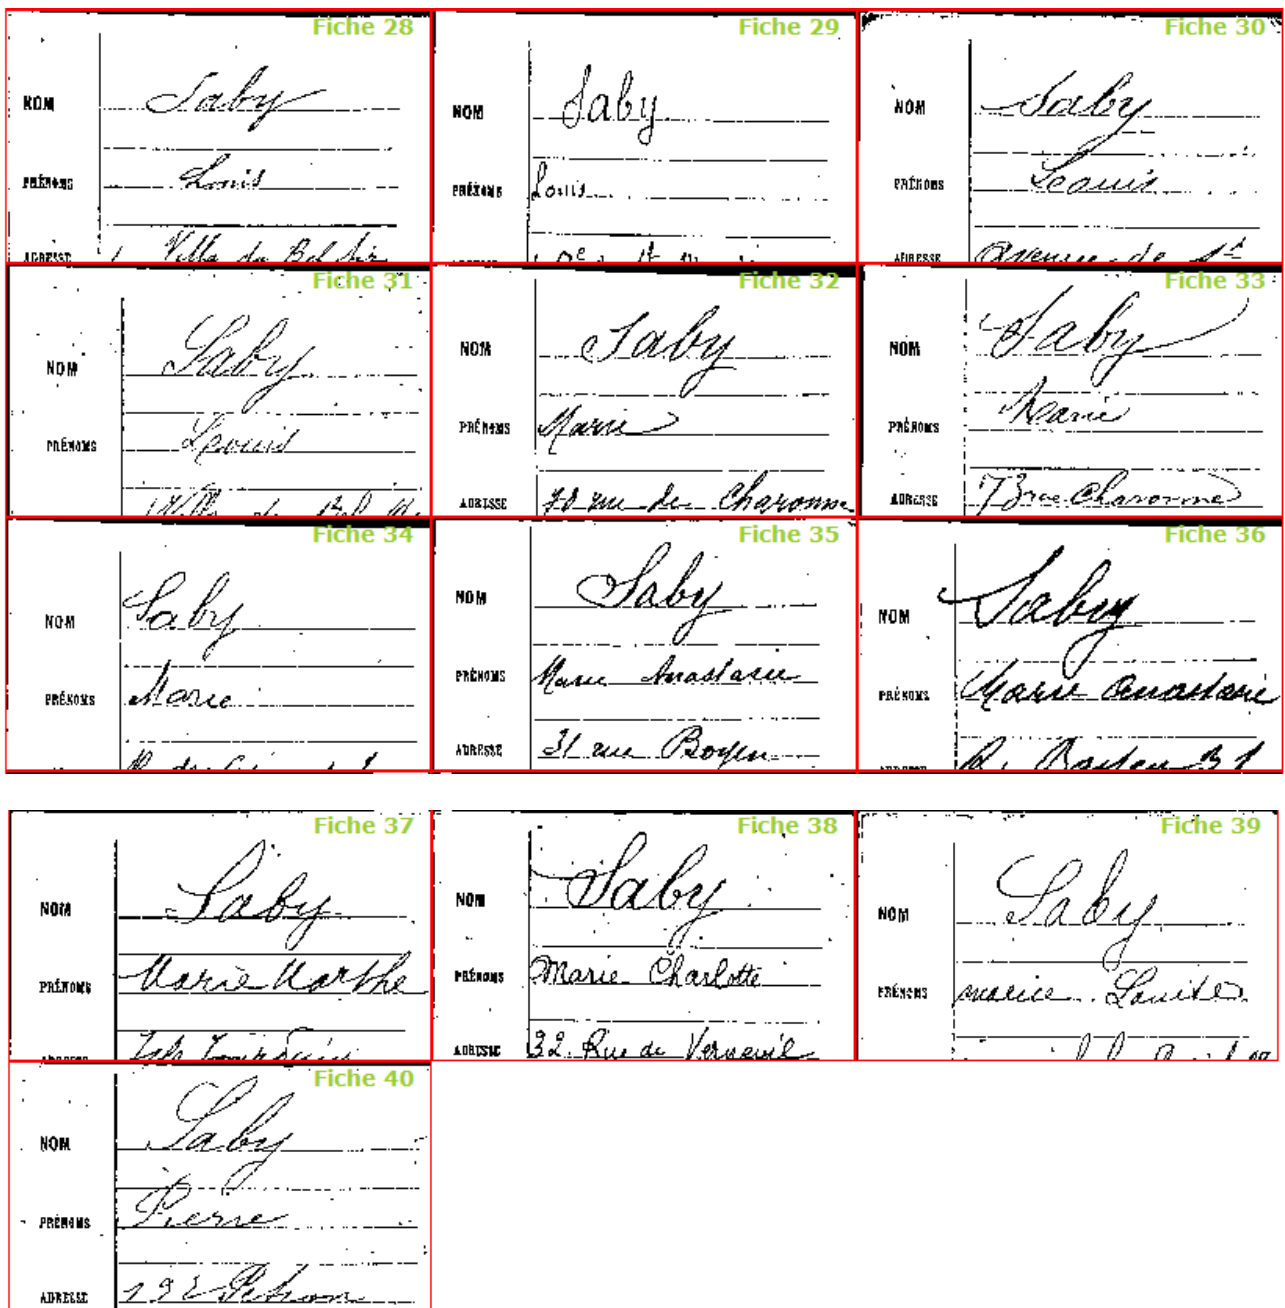 Fiche 28
NOM Saby
PRÉNOMS Louis
ADRESSE 1 Villa du Bel Air
Fiche 29
NOM Saby
PRÉNOMS Louis
Fiche 30
NOM Saby
PRÉNOMS Louis
ADRESSE Avenue de
Fiche 31
NOM Saby
PRÉNOMS Louis
Villa du Bel
Fiche 32
NOM Saby
PRÉNOMS Marie
ADRESSE 70 rue de Charonne
Fiche 33
NOM Saby
PRÉNOMS Marie
ADRESSE 73 rue Charonne
Fiche 34
NOM Saby
PRÉNOMS Marie
Fiche 35
NOM Saby
PRÉNOMS Marie Anastasie
ADRESSE 31 rue Boyer
Fiche 36
NOM Saby
PRÉNOMS Marie Anastasie
31
Fiche 37
NOM Saby
PRÉNOMS Marie Marthe
Fiche 38
NOM Saby
PRÉNOMS Marie Charlotte
ADRESSE 32 Rue de Verneuil
Fiche 39
NOM Saby
PRÉNOMS Louise
Fiche 40
NOM Saby
PRÉNOMS Pierre
ADRESSE